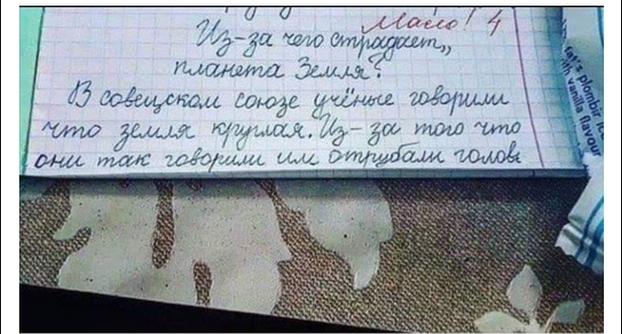 Мало! 4
Из-за чего страдает,,
планета Земля?
В совецском союзе учёные говорили
что земля круглая. Из-за того что
они так говорили им отрубали головы
eat's plombir ice
with vanilla flavour